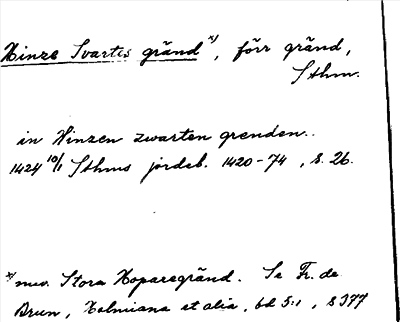 Hinze Svartes gränd x), förr gränd,
Sthm.
in Hinzen zwarten grenden..
1424 10/1 Sthms jordeb. 1420-74, s. 26.
x) nuv. Stora Hoparegränd. Se Fr. de
Brun, Holmiana et alia, bd 5:1, s 377